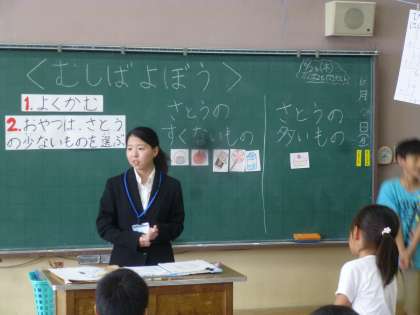 ＜むしばよぼう＞
1. よくかむ
2. おやつは、さとう
の少ないものを選ぶ
さとうの
すくないもの
さとうの
多いもの
月
日